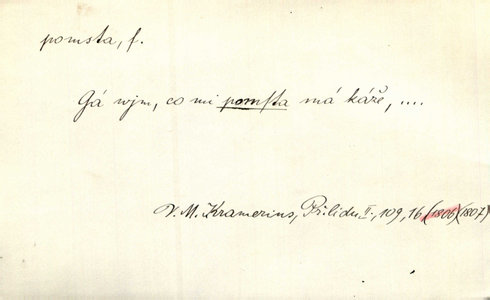 pomsta, f.
Gá wjm, co mi pomſta má káže, ....
V. M. Kramerius, Přilidu II., 109, 16 (1806)(1807)